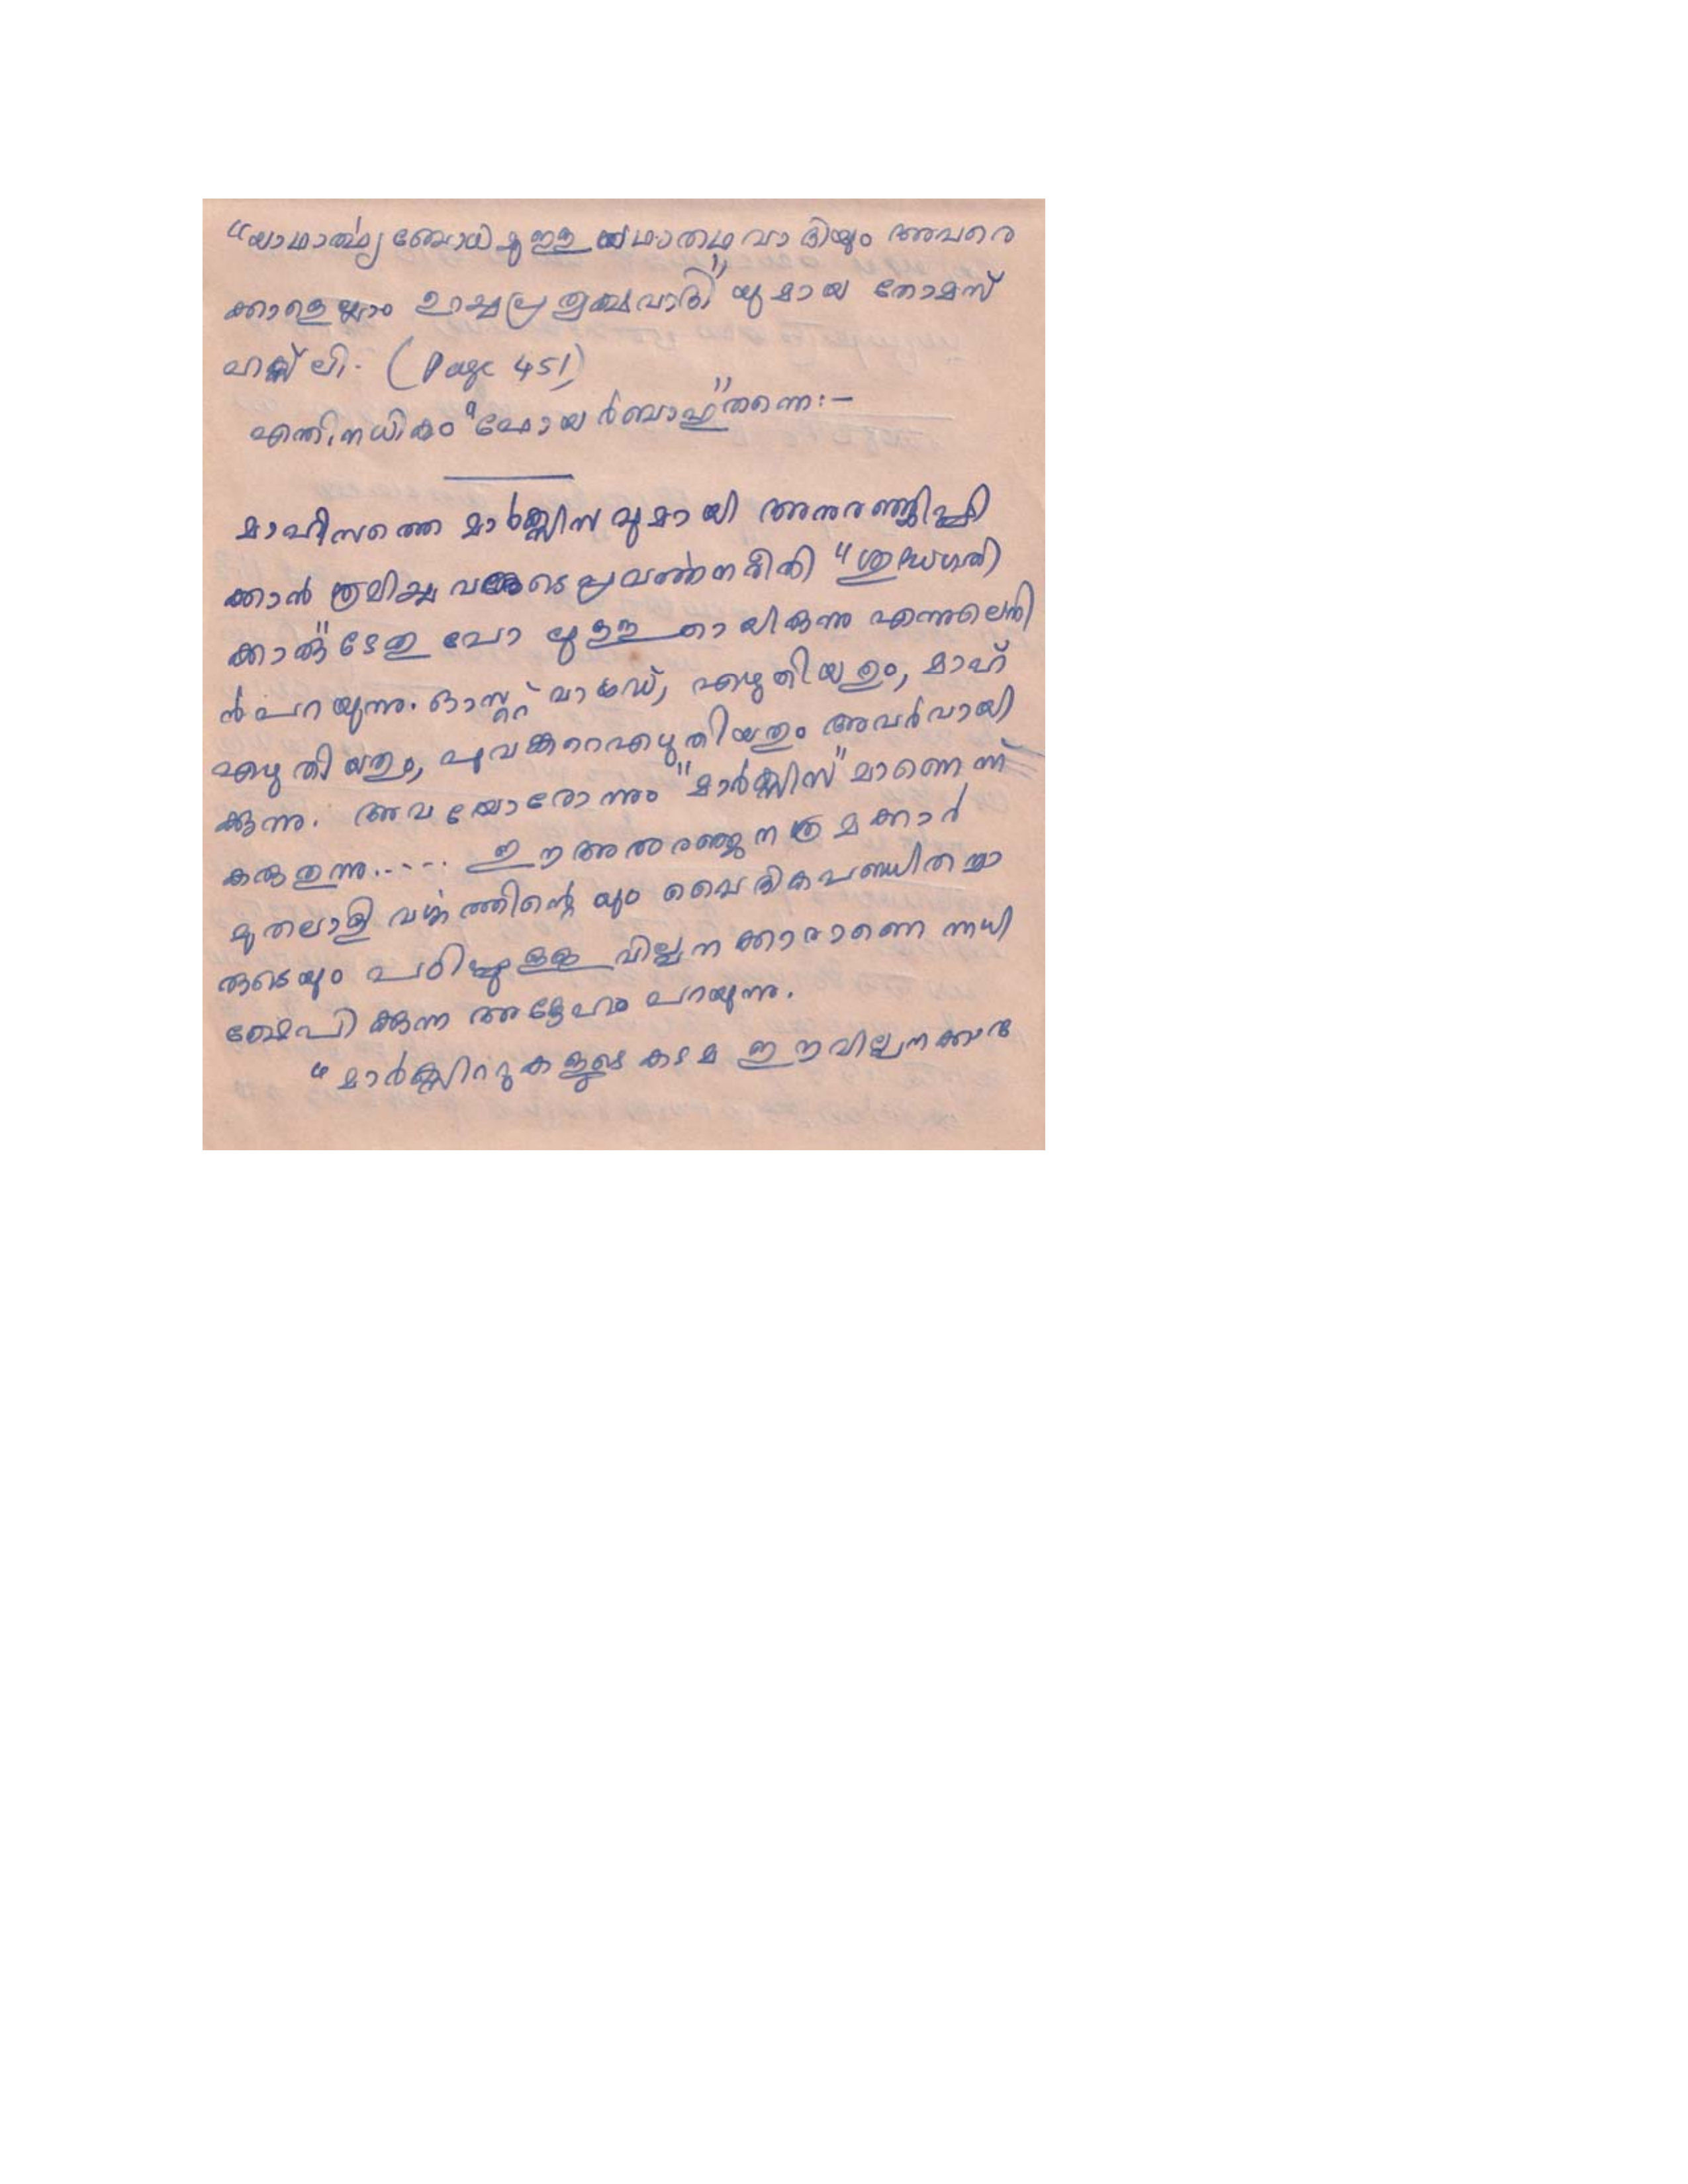 "യാഥാർത്ഥ്യ ബോധമുള്ള യഥാതഥ വാദിയും അവരെ
ക്കാളെല്ലാം ഉറച്ച പ്രത്യക്ഷവാദി"യുമായ തോമസ്
ഹക്സ്ലി. (Page 451)
എന്തിനധികം "ഫോയർബാഹ്"തന്നെ:—
മാഹിസത്തെ മാർക്സിസവുമായി അനുരഞ്ജിപ്പി
ക്കാൻ ശ്രമിച്ചവരുടെ പ്രവർത്തനരീതി "ശുദ്ധഗതി
ക്കാരു"ടേതു പോലുള്ളതായിരുന്നു എന്നുലെനി
ൻ പറയുന്നു. ഓസ്റ്റ് വാൾഡ്, എഴുതിയതും, മാഹ്
എഴുതിയതും, എഴുതിയതും അവർവായി
ക്കുന്നു. അവയോരോന്നും "മാർക്സിസ"മാണെന്ന്
കരുതുന്നു..... ഈ അനുരഞ്ജനശ്രമക്കാർ
മുതലാളി വർഗ്ഗത്തിന്റേയും വൈദികപണ്ഡിതന്മാ
രുടെയും പഠിപ്പുള്ള വില്പനക്കാരാണെന്നധി
ക്ഷേപിക്കുന്ന അദ്ദേഹം പറയുന്നു.
"മാർക്സിസ്റ്റുകളുടെ കടമ ഈ വില്പനക്കാരു